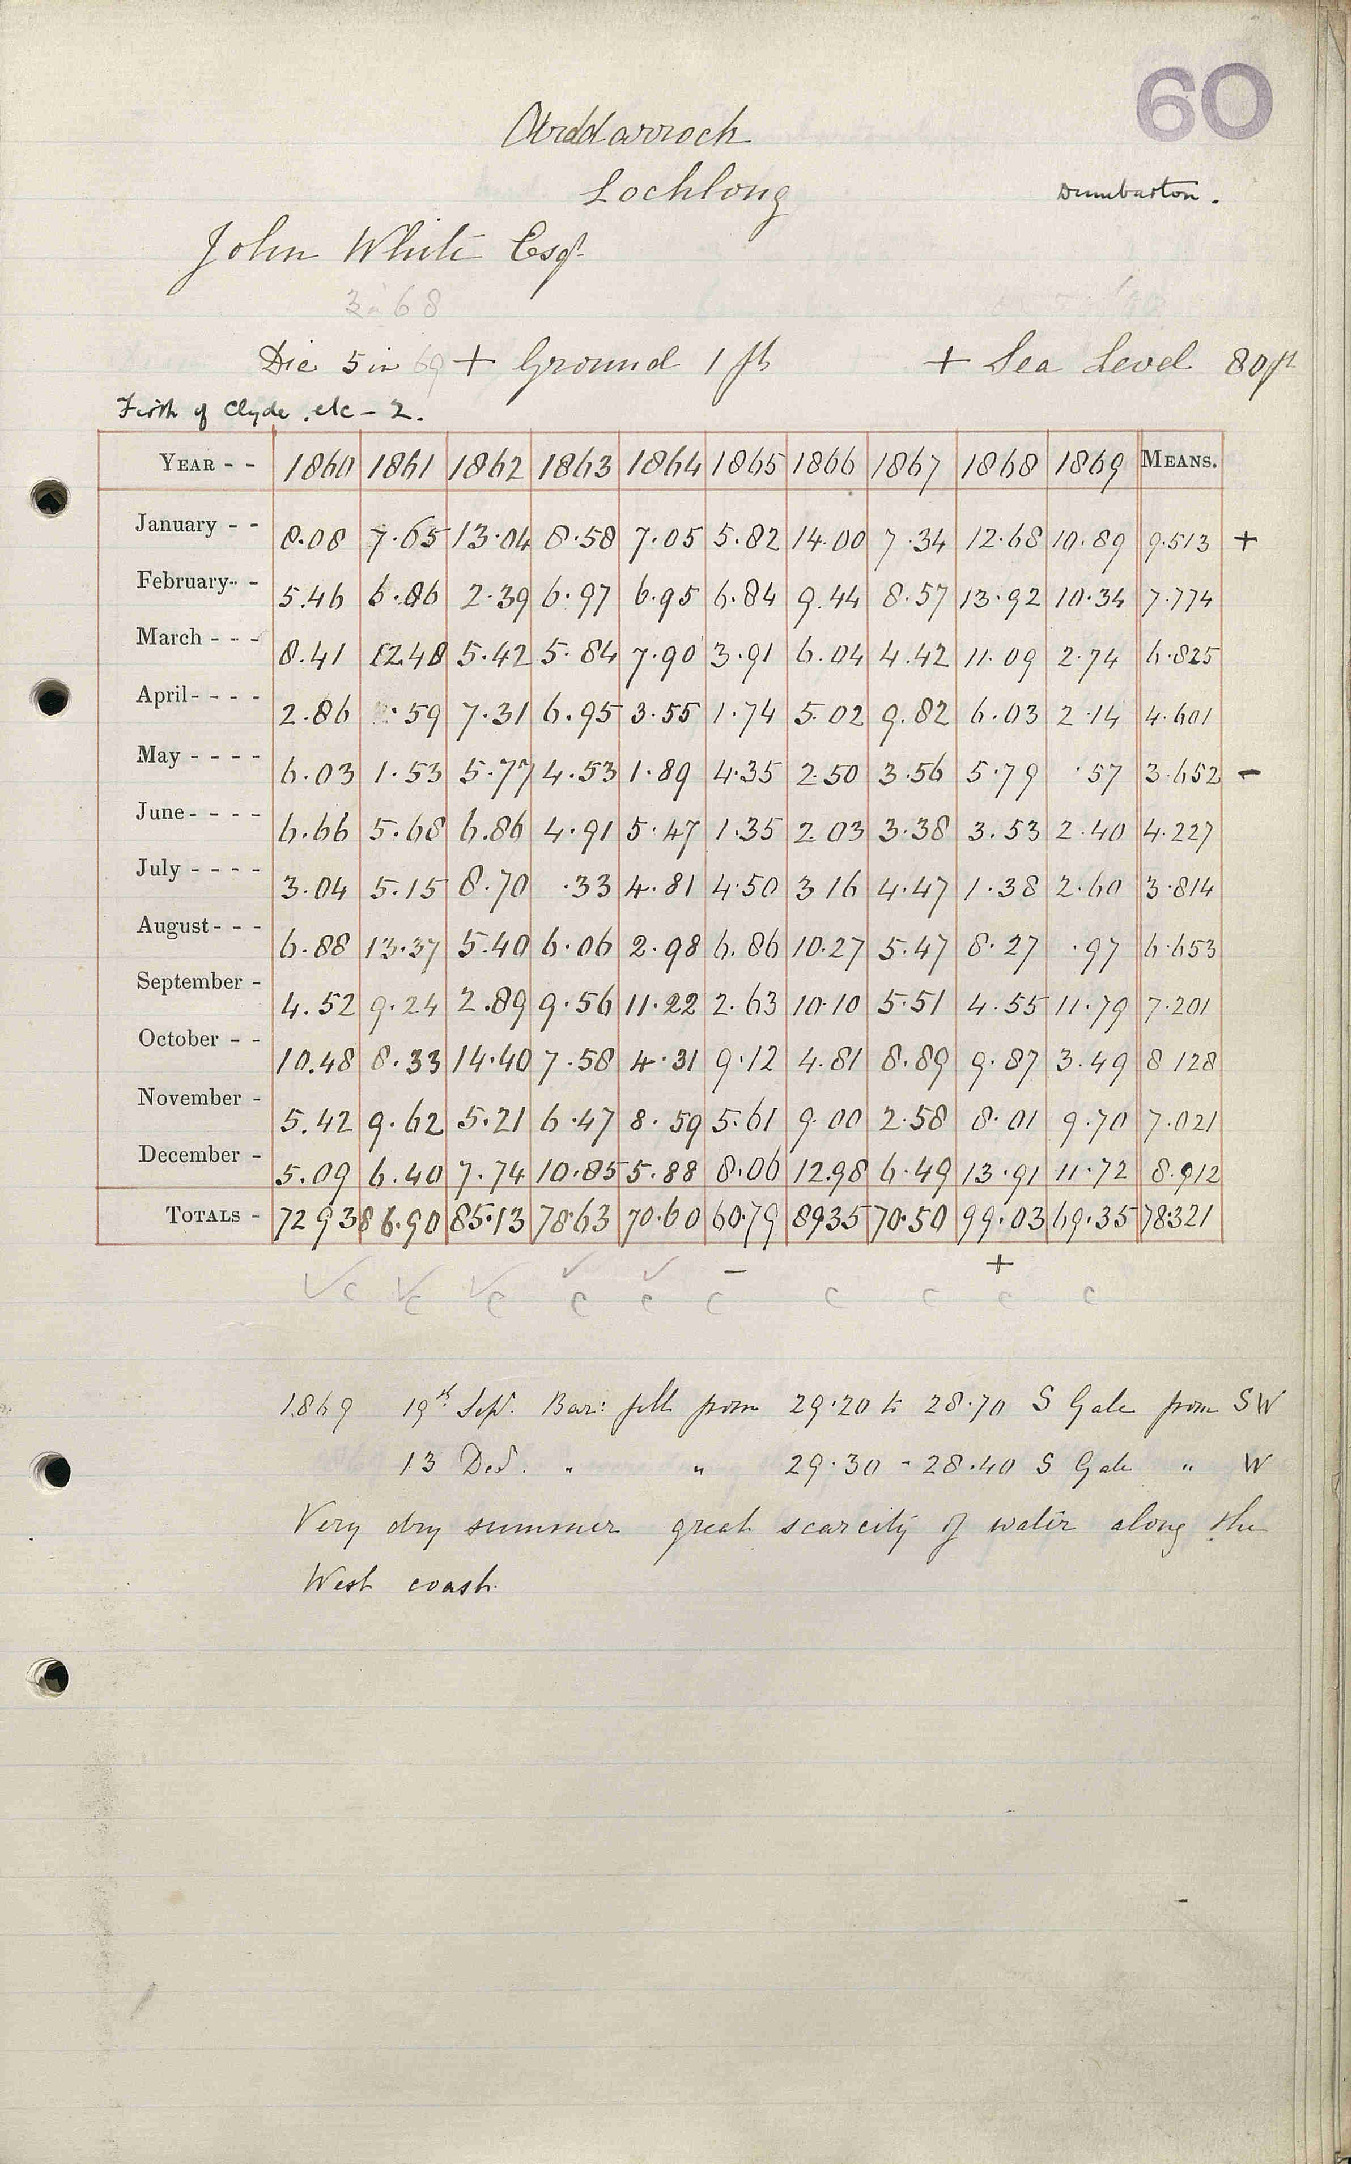 60
Arddarroch
Lochlong
Dumbarton.
John White Esqr.
3in 68
Dia 5 in 69 + Ground 1 ft + Sea Level 80 ft
Firth of Clyde, etc - 2.
YEAR - - 1860 1861 1862 1863 1864 1865 1866 1867 1868 1869 MEANS.
January - - 8.08 7.65 13.04 8.58 7.05 5.82 14.00 7.34 12.68 10.89 9.513 +
February - - 5.46 6.86 2.39 6.97 6.95 6.84 9.44 8.57 13.92 10.34 7.774
March - - - 8.41 12.48 5.42 5.84 7.90 3.91 6.04 4.42 11.09 2.74 6.825
April - - - - 2.86 .59 7.31 6.95 3.55 1.74 5.02 9.82 6.03 2.14 4.601
May - - - - 6.03 1.53 5.77 4.53 1.89 4.35 2.50 3.56 5.79 .57 3.652 -
June - - - - 6.66 5.68 6.86 4.91 5.47 1.35 2.03 3.38 3.53 2.40 4.227
July - - - - 3.04 5.15 8.70 .33 4.81 4.50 3 16 4.47 1.38 2.60 3.814
August - - - 6.88 13.37 5.40 6.06 2.98 6.86 10.27 5.47 8.27 .97 6.653
September - 4.52 9.24 2.89 9.56 11.22 2.63 10.10 5.51 4.55 11.79 7.201
October - - 10.48 8.33 14.40 7.58 4.31 9.12 4.81 8.89 9.87 3.49 8 128
November - 5.42 9.62 5.21 6.47 8.59 5.61 9.00 2.58 8.01 9.70 7.021
December - 5.09 6.40 7.74 10.85 5.88 8.06 12.98 6.49 13.91 11.72 8.912
TOTALS - 72 93 86.90 85.13 78.63 70.60 60.79 89.35 70.50 99.03 69.35 78.321
- +
c c c c c c c c c c
1869 19th Sept. Bar: fell from 29.20 to 28.70 S Gale from SW
13 Decr. " " 29.30 - 28.40 S Gale " W
Very dry summer great scarcity of water along the
West coast.